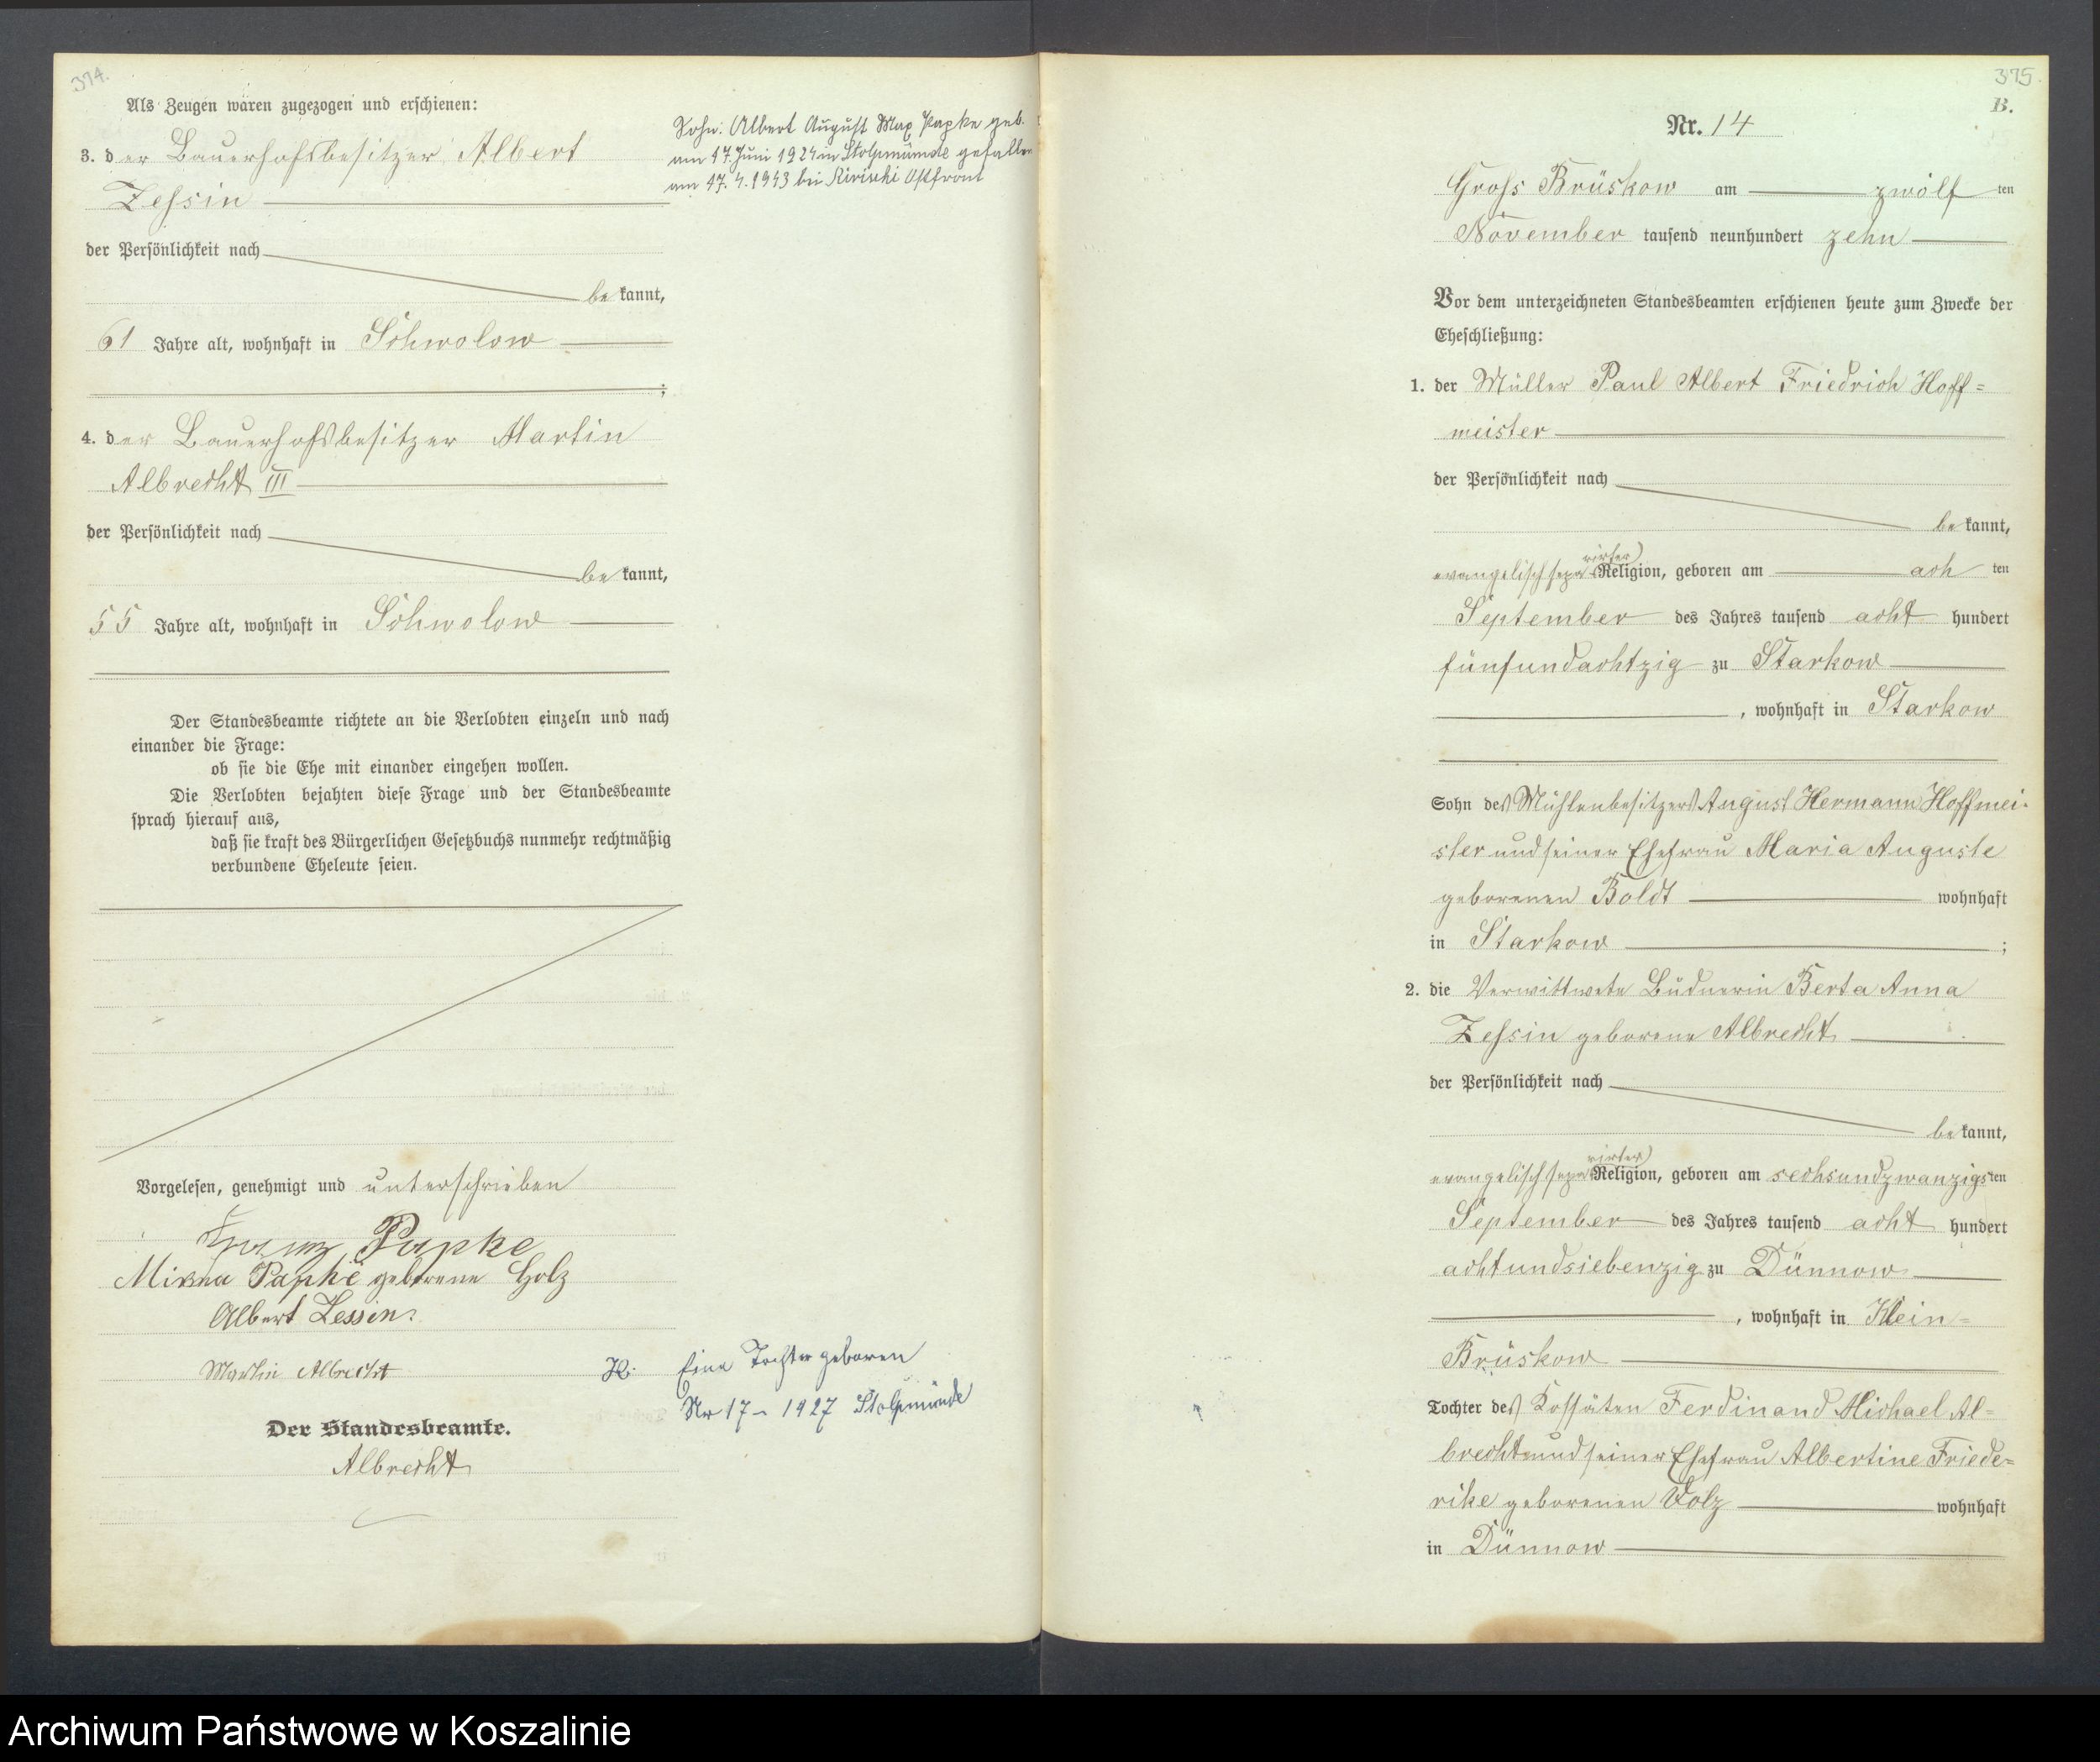 374.
Als Zeugen waren zugezogen und erschienen:
3. der Bauerhofsbesitzer Albert
Zessin
der Persönlichkeit nach
bekannt,
61 Jahre alt, wohnhaft in Schwolow
;
4. der Bauerhofsbesitzer Martin
Albrecht III
der Persönlichkeit nach
bekannt,
55 Jahre alt, wohnhaft in Schwolow
Der Standesbeamte richtete an die Verlobten einzeln und nach
einander die Frage:
ob sie die Ehe mit einander eingehen wollen.
Die Verlobten bejahten diese Frage und der Standesbeamte
sprach hierauf aus,
daß sie kraft des Bürgerlichen Gesetzbuchs nunmehr rechtmäßig
verbundene Eheleute seien.
Vorgelesen, genehmigt und unterschrieben
Franz Papke
Minna Papke geborene Holz
Albert Zessin.
Martin Albrecht
Der Standesbeamte.
Albrecht
Sohn: Albert August Max Papke geb.
am 17. Juni 1924 in Stolpmünde gefallen
am 17.4.1943 bei Kirischi Ostfront
H. Eine Tochter geboren
Nr 17 - 1927 Stolpmünde
375.
B.
Nr. 14
Gross Brüskow am zwölf ten
November tausend neunhundert zehn
Vor dem unterzeichneten Standesbeamten erschienen heute zum Zwecke der
Eheschließung:
1. der Müller Paul Albert Friedrich Hoff=
meister
der Persönlichkeit nach
bekannt,
evangelisch separirter Religion, geboren am ach ten
September des Jahres tausend acht hundert
fünfundachtzig zu Starkow
, wohnhaft in Starkow
Sohn des Mühlenbesitzers August Hermann Hoffmei-
ster und seiner Ehefrau Maria Auguste
geborenen Boldt wohnhaft
in Starkow ;
2. die Verwittwete Büdnerin Berta Anna
Zessin geborene Albrecht
der Persönlichkeit nach
bekannt,
evangelisch separirter Religion, geboren am sechsundzwanzigsten
September des Jahres tausend acht hundert
achtundsiebenzig zu Dünnow
, wohnhaft in Klein=
Brüskow
Tochter des Kossäten Ferdinand Michael Al=
brecht und seiner Ehefrau Albertine Friede=
rike geborenen Volz wohnhaft
in Dünnow
Archiwum Państwowe w Koszalinie